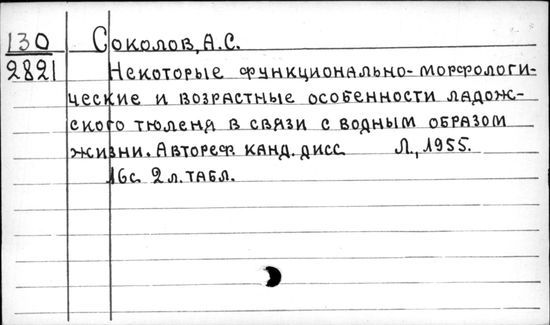 130 Соколов, А.С.
2821 Некоторые функционально-морфологи-
ческие и возрастные особенности ладож-
ского тюленя в связи с водным образом
жизни. Автореф. канд. дисс. Л., 1955.
16с. 2 л. табл.